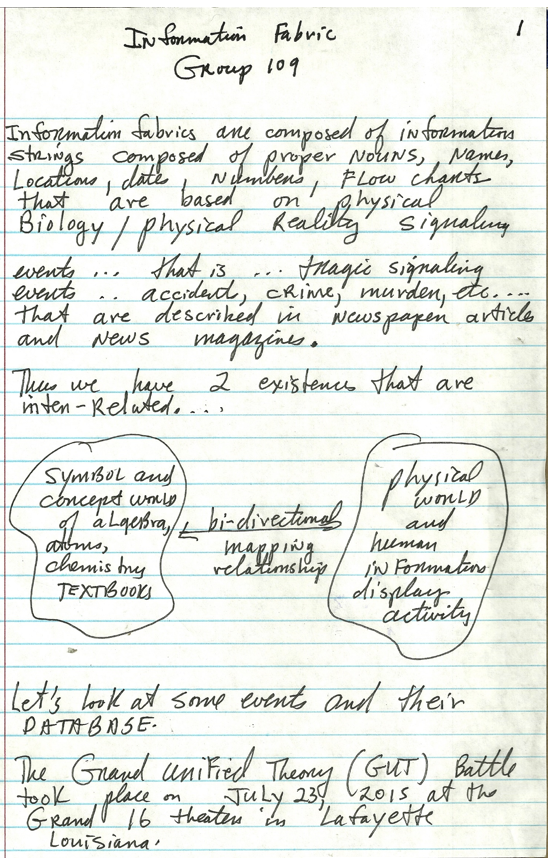 1
Information Fabric
Group 109
Information fabrics are composed of information
strings composed of proper nouns, names,
Locations, dates, numbers, flow charts
that are based on physical
Biology / physical Reality signaling
events ... that is ... tragic signaling
events .. accident, crime, murder, etc....
that are described in newspaper articles
and news magazines.
Thus we have 2 existences that are
inter-related....
symbol and
concept world
of algebra,
atoms,
chemistry
TEXTBOOKS
bi-directional
mapping
relationship
physical
world
and
human
information
display
activity
Let's look at some events and their
DATABASE.
The Grand Unified Theory (GUT) Battle
took place on July 23, 2015 at the
Grand 16 theater in Lafayette
Louisiana.